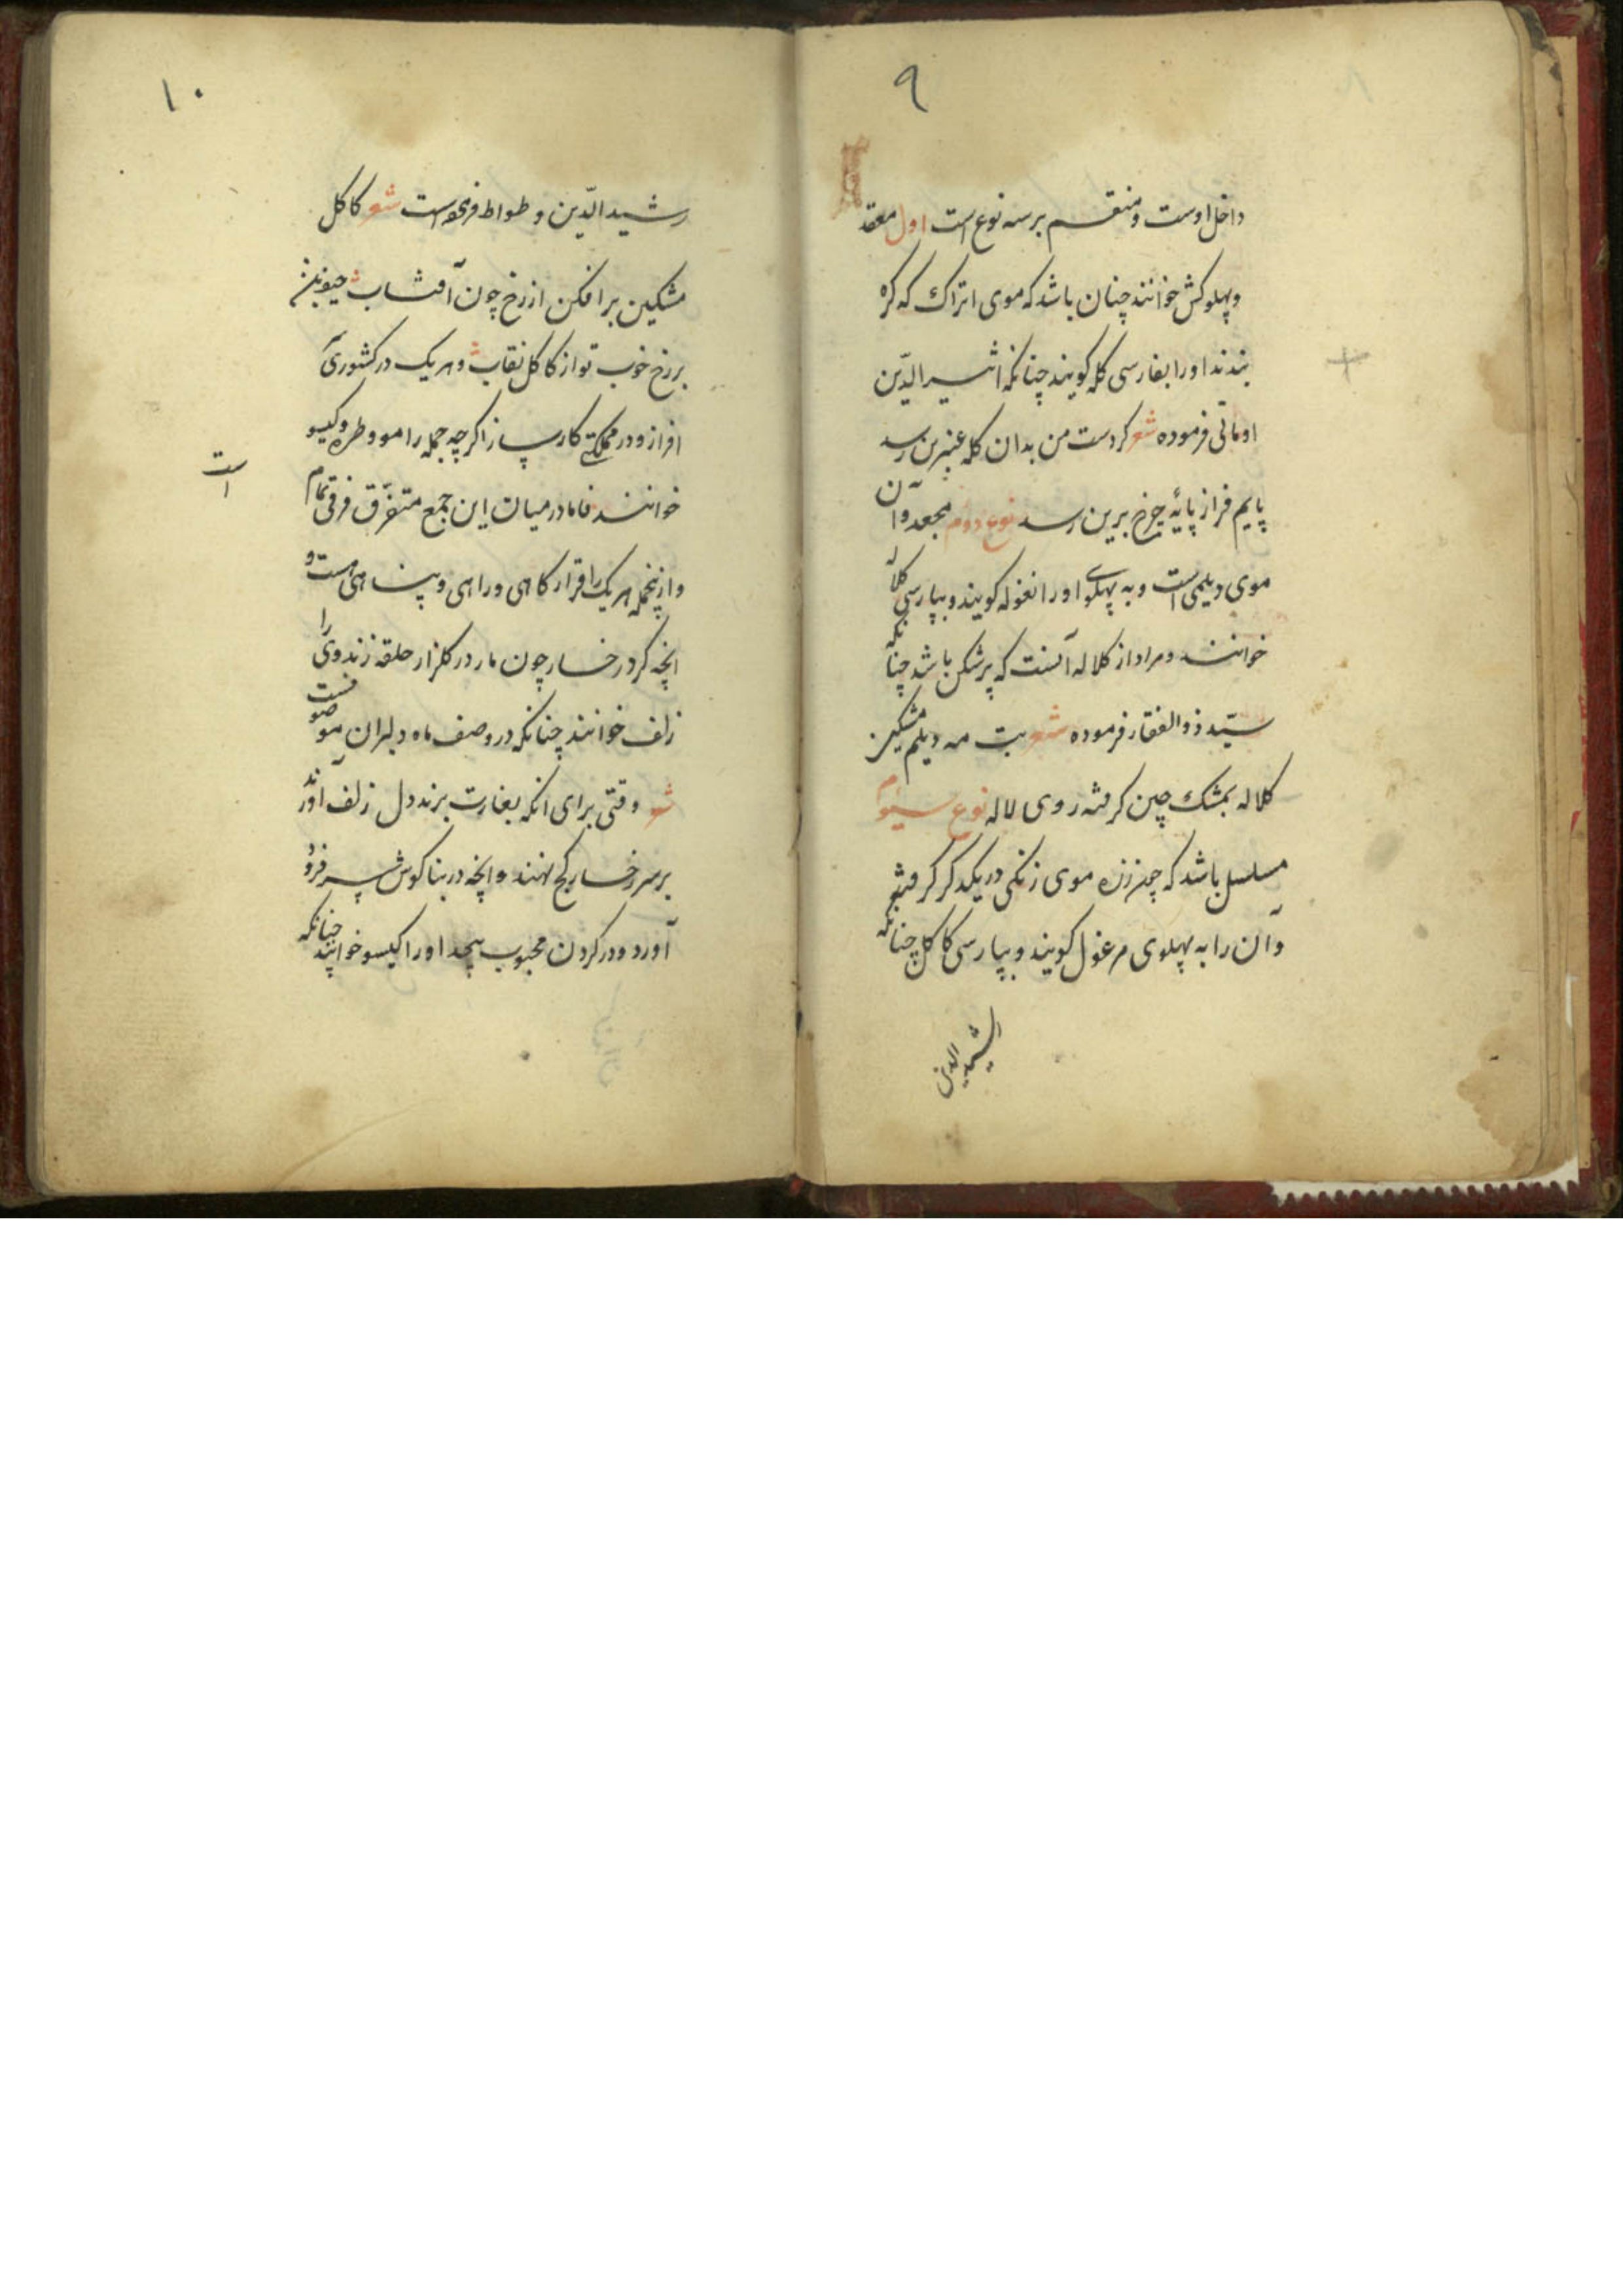 ۹
داخل اوست و منقسم بر سه نوع است اول معقد
و پهلو کش خوانند چنان باشد که موی اتراک که کره
بندند او را بفارسی کله کویند چنانکه اثیر الدّین
اومانی فرموده شعر کر دست من بدان کله عنبرین رسد
پایم فراز پایهٔ چرخ برین رسد نوع دوم مجعد و آن
موی دیلمی است و به پهلوی او را نغوله کویند و بپارسی کلاله
خوانند و مراد از کلاله آنست که پر شکن باشد چنانکه
سیّد ذوالفقار فرموده شعر بت مه دیلم مشکین
کلاله بمشک چین کرفته روی لاله نوع سیوم
مسلسل باشد که چون زره موی زنکی در یکدکر کرفته
و آن را به پهلوی مرغول کویند و بپارسی کاکل چنانکه
رشید الدین
۱۰
رشید الدّین وطواط فرموده است شعر کاکل
مشکین برافکن از رخ چون آفتاب
بر رخ خوب تو از کاکل نقاب و هر یک در کشوری
افراز و در مملکتی کارساز اکرچه جمله را مو و طره و کیسو
خوانند فاما در میان این جمع متفرّق فرقی تمام
است
و ازینجمله هر یک را قرار کاهی و راهی و پناهی است و
انچه کرد رخسار چون مار در کلزار حلقه زند وی را
زلف خوانند چنانکه در وصف ماه دلبران موصوفست
شعر وقتی برای انکه بغارت برند دل زلف آورند
بر سر رخسار کج نهند و انچه در بناکوش سر فرو
آورد و در کردن محبوب پیچد او را کیسو خوانند چنانکه